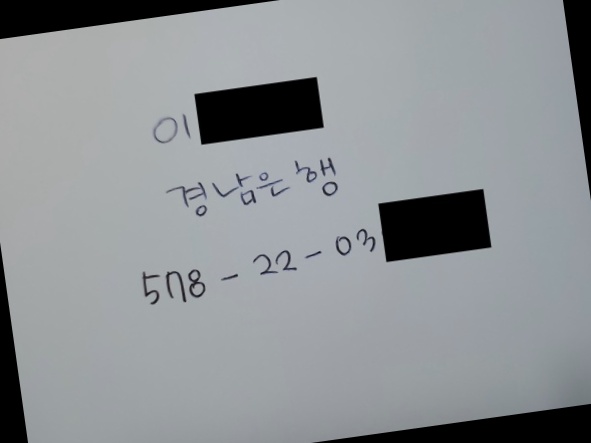 이
경남은행
578-22-03